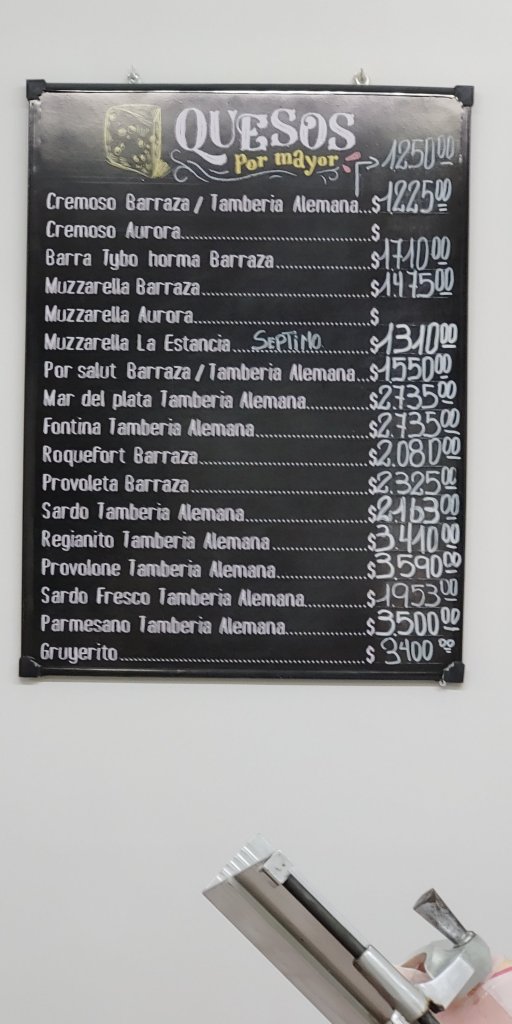 QUESOS
Por mayor
125000
Cremoso Barraza / Tamberia Alemana...$122500
Cremoso Aurora...$
Barra Tybo horma Barraza...$171000
Muzzarella Barraza...$147500
Muzzarella Aurora...$
Muzzarella La Estancia...SEPTIMO $131000
Por salut Barraza / Tamberia Alemana...$155000
Mar del plata Tamberia Alemana...$273500
Fontina Tamberia Alemana...$273500
Roquefort Barraza...$2.08000
Provoleta Barraza...$2.32500
Sardo Tamberia Alemana...$216300
Regianito Tamberia Alemana...$3.41000
Provolone Tamberia Alemana...$3.59000
Sardo Fresco Tamberia Alemana...$195300
Parmesano Tamberia Alemana...$3.50000
Gruyerito...$ 340000